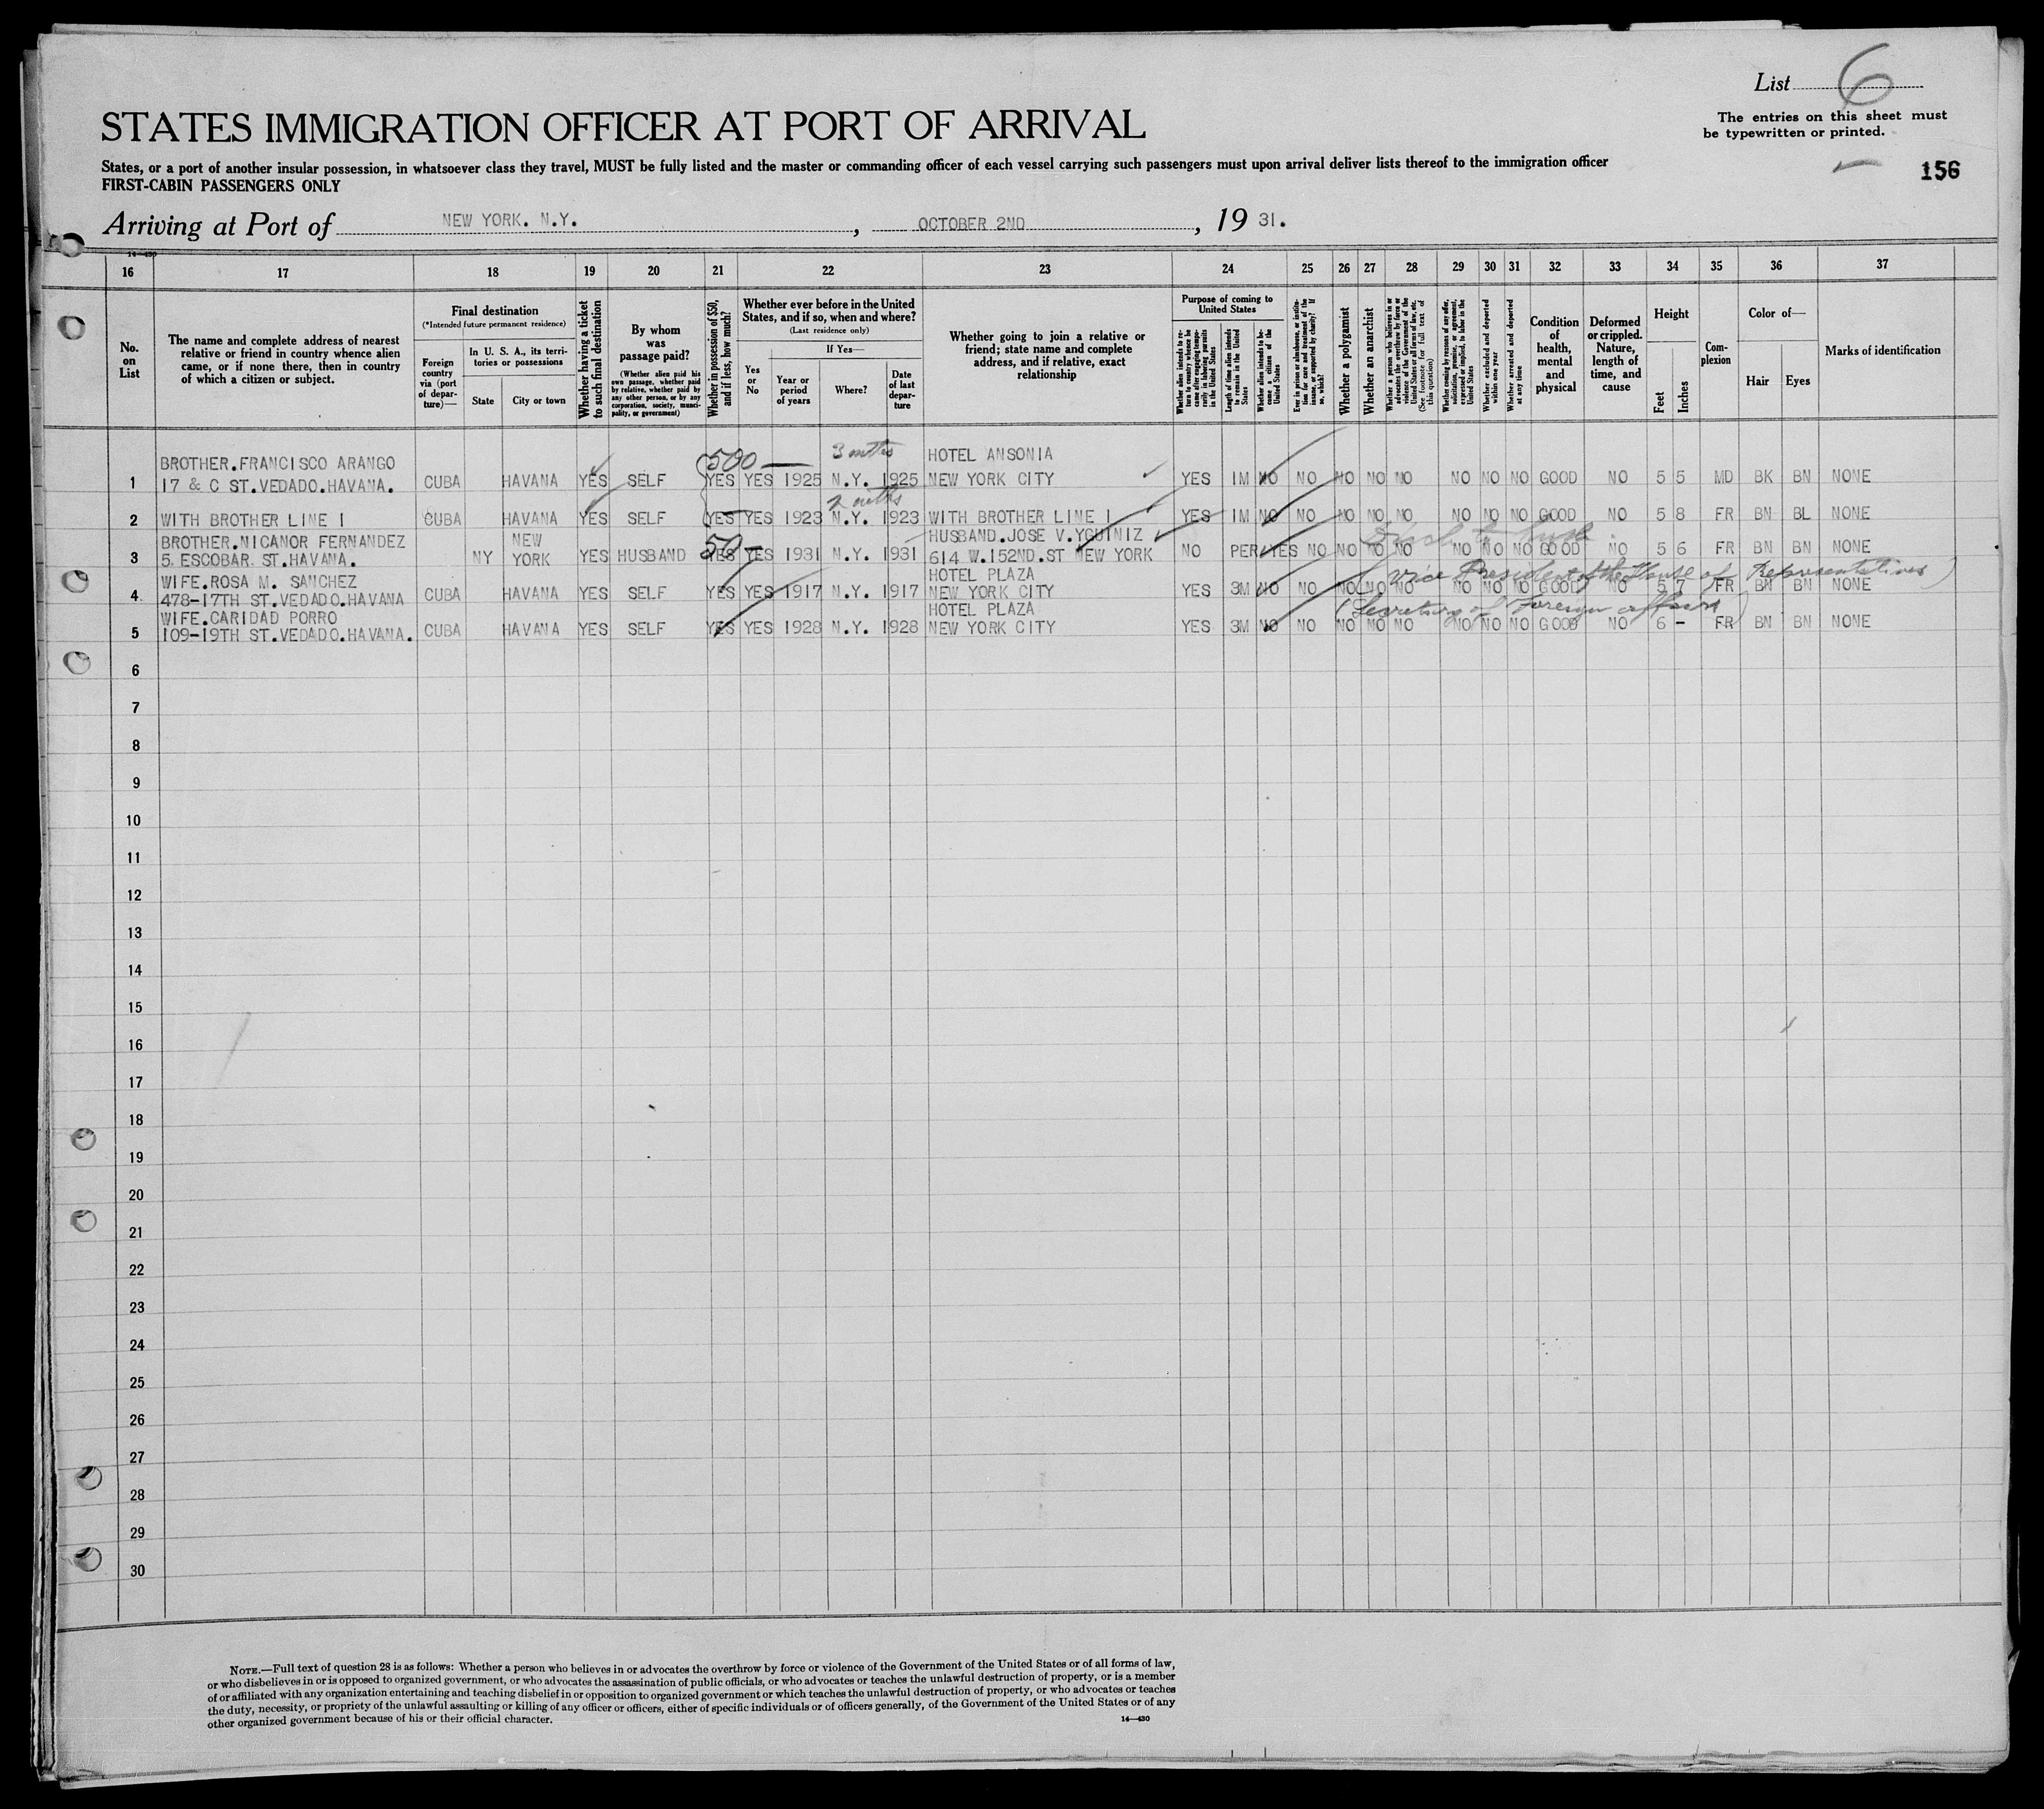 List 6
STATES IMMIGRATION OFFICER AT PORT OF ARRIVAL
The entries on this sheet must
be typewritten or printed.
States, or a port of another insular possession, in whatsoever class they travel, MUST be fully listed and the master or commanding officer of each vessel carrying such passengers must upon arrival deliver lists thereof to the immigration officer
FIRST-CABIN PASSENGERS ONLY
156
Arriving at Port of NEW YORK. N.Y. , OCTOBER 2ND , 19 31.
14—430
16 17 18 19 20 21 22 23 24 25 26 27 28 29 30 31 32 33 34 35 36 37
No. on List
The name and complete address of nearest relative or friend in country whence alien came, or if none there, then in country of which a citizen or subject.
Final destination
(*Intended future permanent residence)
Foreign country via (port of departure)—
In U. S. A., its territories or possessions
State
City or town
Whether having a ticket to such final destination
By whom was passage paid?
(Whether alien paid his own passage, whether paid by relative, whether paid by any other person, or by any corporation, society, municipality, or government)
Whether in possession of $50, and if less, how much?
Whether ever before in the United States, and if so, when and where?
(Last residence only)
Yes or No
If Yes—
Year or period of years
Where?
Date of last departure
Whether going to join a relative or friend; state name and complete address, and if relative, exact relationship
Purpose of coming to United States
Whether alien intends to return to country whence he came after engaging temporarily in laboring pursuits in the United States
Length of time alien intends to remain in the United States
Whether alien intends to become a citizen of the United States
Ever in prison or almshouse, or institution for care and treatment of the insane, or supported by charity? If so, which?
Whether a polygamist
Whether an anarchist
Whether a person who believes in or advocates the overthrow by force or violence of the Government of the United States or all forms of law, etc. (See footnote for full text of this question)
Whether coming by reason of any offer, solicitation, promise, or agreement, expressed or implied, to labor in the United States
Whether excluded and deported within one year
Whether arrested and deported at any time
Condition of health, mental and physical
Deformed or crippled. Nature, length of time, and cause
Height
Feet
Inches
Complexion
Color of—
Hair
Eyes
Marks of identification
500 — 3 mths
BROTHER.FRANCISCO ARANGO HOTEL ANSONIA
1 17 & C ST.VEDADO.HAVANA. CUBA HAVANA YES SELF YES YES 1925 N.Y. 1925 NEW YORK CITY YES 1M NO NO NO NO NO NO NO NO GOOD NO 5 5 MD BK BN NONE
2 mths
2 WITH BROTHER LINE 1 CUBA HAVANA YES SELF YES YES 1923 N.Y. 1923 WITH BROTHER LINE 1 YES 1M NO NO NO NO NO NO NO NO GOOD NO 5 8 FR BN BL NONE
BROTHER.NICANOR FERNANDEZ NEW 50 — HUSBAND.JOSE V.YGUINIZ
3 5. ESCOBAR. ST.HAVANA. NY YORK YES HUSBAND YES YES 1931 N.Y. 1931 614 W.152ND.ST NEW YORK NO PER YES NO NO NO NO NO NO NO GOOD NO 5 6 FR BN BN NONE
WIFE.ROSA M. SANCHEZ HOTEL PLAZA (Vice President of the House of Representatives)
4 478-17TH ST.VEDADO.HAVANA CUBA HAVANA YES SELF YES YES 1917 N.Y. 1917 NEW YORK CITY YES 3M NO NO NO NO NO NO NO NO GOOD NO 5 7 FR BN BN NONE
WIFE.CARIDAD PORRO HOTEL PLAZA (Secretary of Foreign affairs)
5 109-19TH ST.VEDADO.HAVANA. CUBA HAVANA YES SELF YES YES 1928 N.Y. 1928 NEW YORK CITY YES 3M NO NO NO NO NO NO NO NO GOOD NO 6 - FR BN BN NONE
6
7
8
9
10
11
12
13
14
15
16
17
18
19
20
21
22
23
24
25
26
27
28
29
30
NOTE.—Full text of question 28 is as follows: Whether a person who believes in or advocates the overthrow by force or violence of the Government of the United States or of all forms of law,
or who disbelieves in or is opposed to organized government, or who advocates the assassination of public officials, or who advocates or teaches the unlawful destruction of property, or is a member
of or affiliated with any organization entertaining and teaching disbelief in or opposition to organized government or which teaches the unlawful destruction of property, or who advocates or teaches
the duty, necessity, or propriety of the unlawful assaulting or killing of any officer or officers, either of specific individuals or of officers generally, of the Government of the United States or of any
other organized government because of his or their official character.
14—430